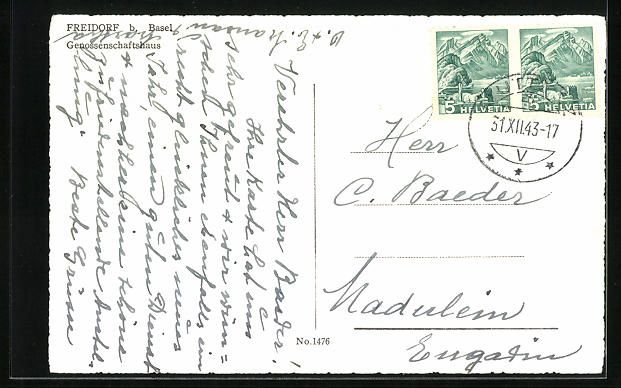 FREIDORF b. Basel
Genossenschaftshaus
Verehrter Herr Baeder!
Ihre Karte hat uns
sehr gefreut & wir wün=
schen Ihnen ebenfalls ein
recht glückliches neues
Jahr, einen guten Dienst
& nachher eine schöne
zufriedenstellende Anstel-
lung. Beste Grüsse
5 HELVETIA
5 HELVETIA
31.XII.43-17
V
Herr
C. Baeder
Madulein
Engadin
No. 1476